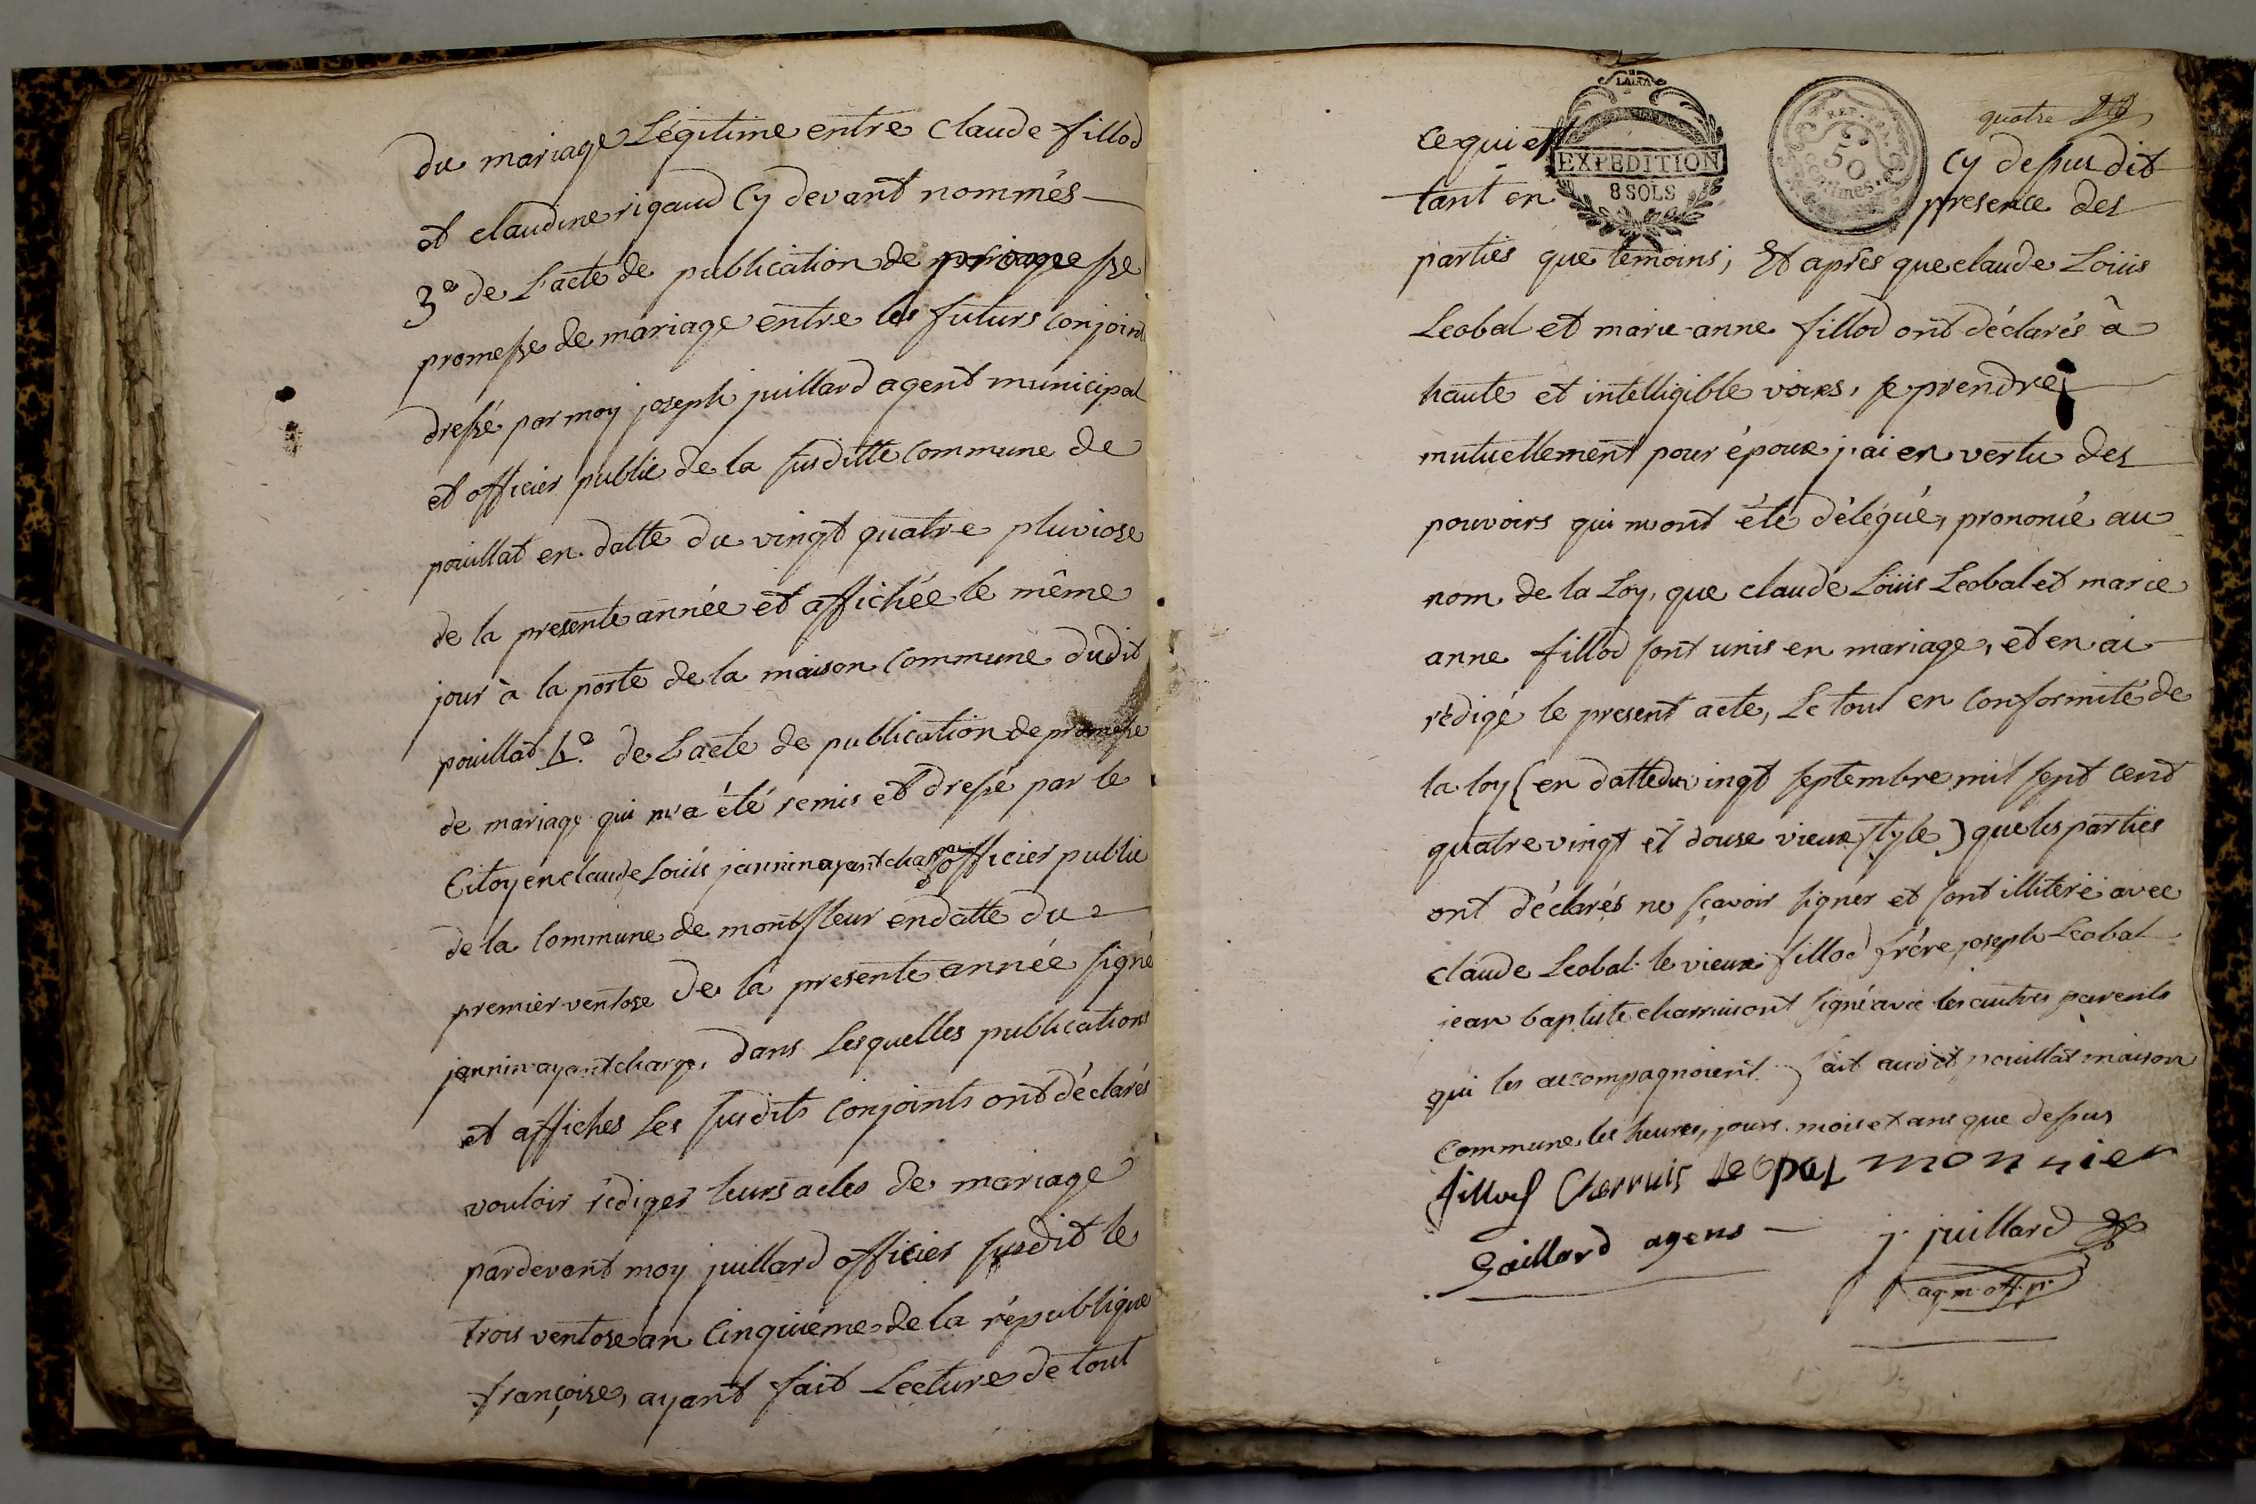 du mariage Légitime entre claude fillod
et claudine rigaud Cy devant nommés
3° de L'acte de publication de
promesse de mariage entre les futurs conjoint
dressé par moy joseph juillard agent municipal
et officier public de la susditte commune de
pouillat en datte du vingt quatre pluviose
de la presente année et affichée le même
jour à la porte de la maison commune dudit
pouillat 4° de L'acte de publication de promesse
de mariage qui m'a été remis et dressé par le
Citoyen claude Loüis jannin ayant charge officier public
de la commune de montfleur en datte du
premier ventose de la presente année signé
jannin ayant charge, dans Lesquelles publications
et affiches Les susdits conjoints ont déclarés
vouloir rédiger leurs actes de mariage
pardevant moy juillard officier susdit le
trois ventose an cinquième de la république
françoise, ayant fait Lecture de tout
quatre
ce qui est cy dessus dit
EXPEDITION
8 SOLS
REP. FRA.
50
centimes.
tant en presence des
parties que temoins; Et après que claude Loüis
Leobal et marie-anne fillod ont déclarés à
haute et intelligible voix, se prendre
mutuellement pour époux j'ai en vertu des
pouvoirs qui m'ont été délégué, prononcé au
nom de la Loy, que claude Loüis Leobal et marie
anne fillod sont unis en mariage, et en ai
rédigé le present acte, Le tout en conformité de
la loy (en datte du vingt septembre mil sept cent
quatre vingt et douse vieux style) que les parties
ont déclarés ne sçavoir signer et sont illiteré avec
claude Leobal le vieux fillod frère joseph Leobal
jean baptiste charruis ont signé avec les autres parents
qui les accompagnoient. fait audit pouillat maison
commune les heures, jours mois et ans que dessus
fillod Cherruis Leopal monnier
Gaillard agens j. juillard
ag. m. off. p.